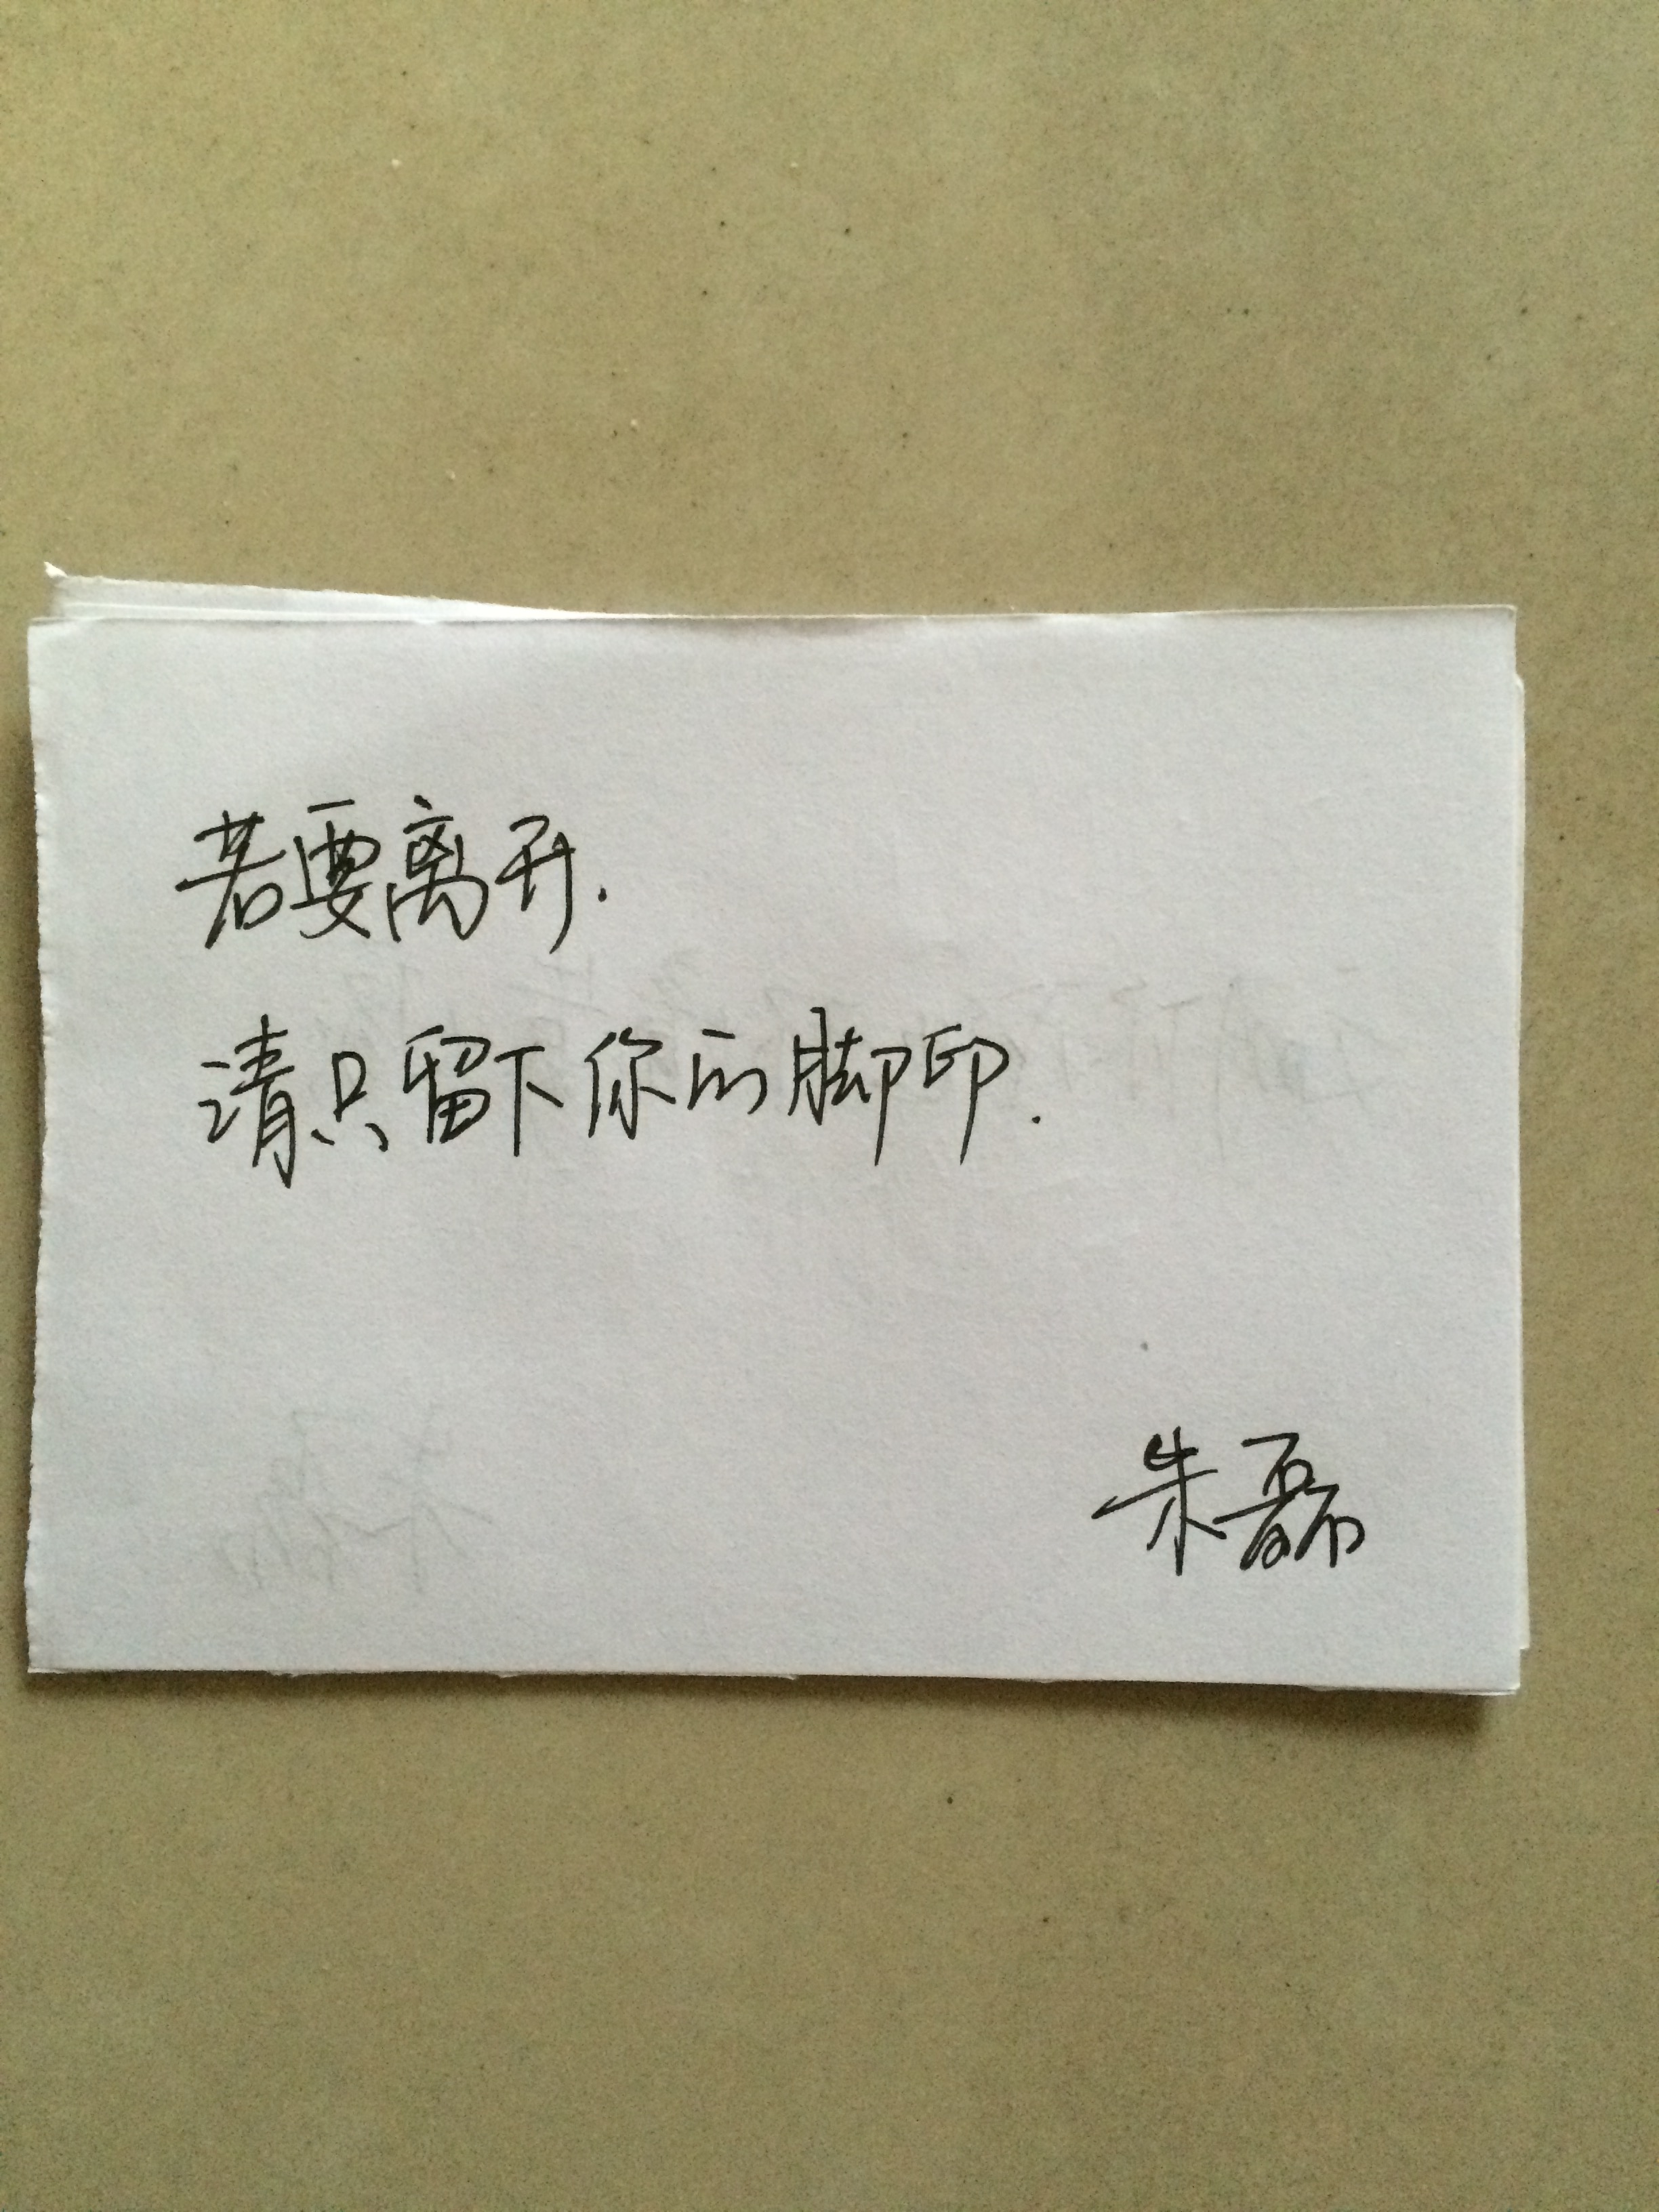 若要离开.
请只留下你的脚印.
朱磊